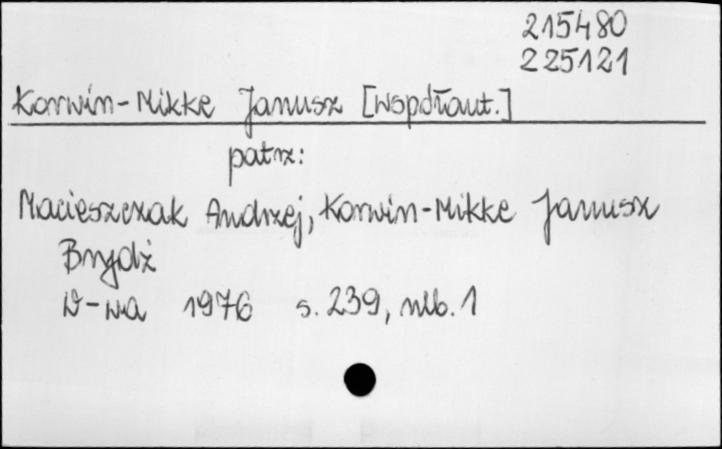 215480
225121
Korwin-Mikke Janusz [współaut.]
patrz:
Macieszczak Andrzej, Korwin-Mikke Janusz
Brydż
W-wa 1976 s. 239, nlb. 1